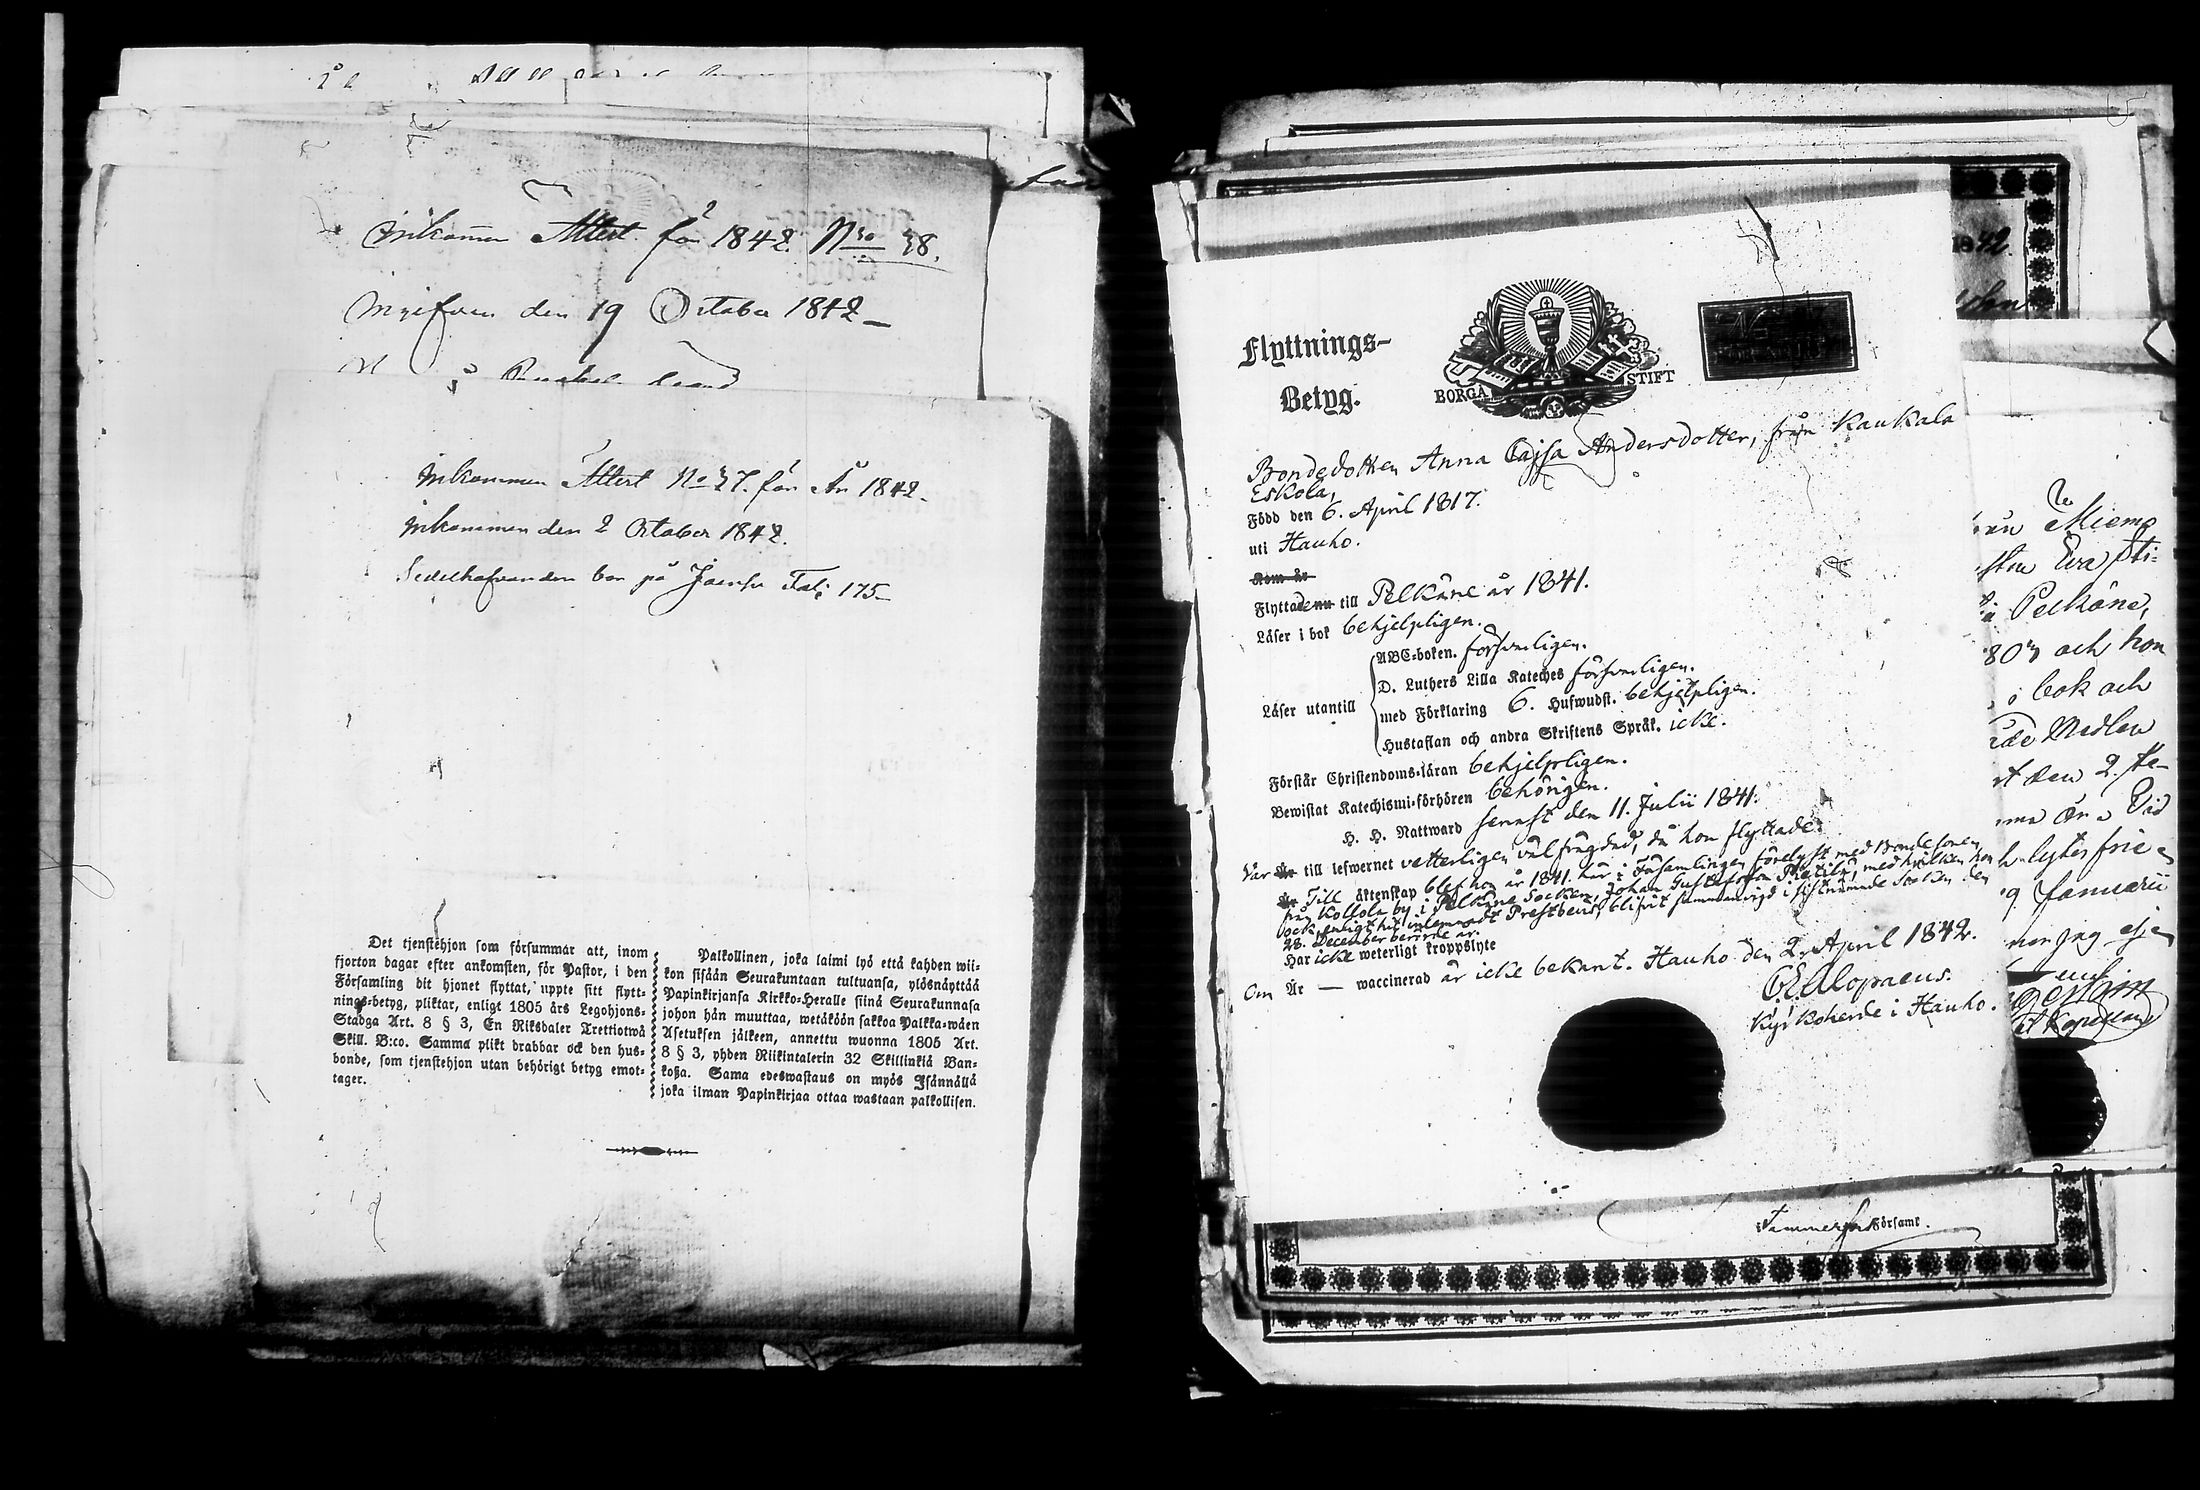 Inkommen Attest för 1842 No 38.
Ingifven den 19 October 1842
Inkommen Attest No 37. för År 1842.
Inkommen den 2 October 1842.
Sedelhafvanden bor på
175
Det tjenstehjon som försummar att, inom
fjorton dagar efter ankomsten, för Pastor, i den
Församling dit hjonet flyttat, uppte sitt flytt-
nings-betyg, pliktar, enligt 1805 års Legohjons-
Stadga Art. 8 § 3, En Riksdaler Trettiotwå
Skill. B:co. Samma plikt drabbar ock den hus-
bonde, som tjenstehjon utan behörigt betyg emot-
tager.
Palkollinen, joka laimi lyö että kahden wii-
kon sisään Seurakuntaan tultuansa, ylösnäyttää
Papinkirjansa Kirkko-Heralle siinä Seurakunnasa
johon hän muuttaa, wetäköön sakkoa Palkka-wäen
Asetuksen jälkeen, annettu wuonna 1805 Art.
8 § 3, yhden Riikintalerin 32 Skillinkiä Ban-
koßa. Sama edeswastaus on myös Isännällä
joka ilman Papinkirjaa ottaa wastaan palkollisen.
Flyttnings-
Betyg.
BORGÅ STIFT
Bondedotten Anna Cajsa Andersdotter, från Kaukala
Eskola,
Född den 6. April 1817.
uti Hauho.
Kom år
Flyttade till Pelkäne år 1841.
Läser i bok behjelpligen.
Läser utantill
ABC-boken. försvarligen.
D. Luthers Lilla Kateches försvarligen.
med Förklaring 6. Hufwudst. behjelpligen.
Hustaflan och andra Skriftens Språk. icke.
Förstår Christendoms-läran behjelpligen.
Bewistat Katechismi-förhören behörigen.
H. H. Nattward sennst den 11. Julii 1841.
Var till lefwernet vetterligen välfrägdad, då hon flyttade.
Till äktenskap blef hon år 1841. här i Församlingen förelyst med Bondesonen
från Kollola by i Pelkäne Socken, Johan Gustafsson med hvilken hon
ock, enligt hit inlemnadt Prestbevis, blifvit sammanvigd i sistnämnde Socken den
28. December berörde år.
Har icke weterligt kroppslyte
Om År — waccinerad är icke bekant. Hauho den 2. April 1842.
C. E. Alopaeus.
Kyrkoherde i Hauho.
1842.
Eva
Pelkäne,
och hon
bok och
den 2.
Januarii
Tammerfors Församl.